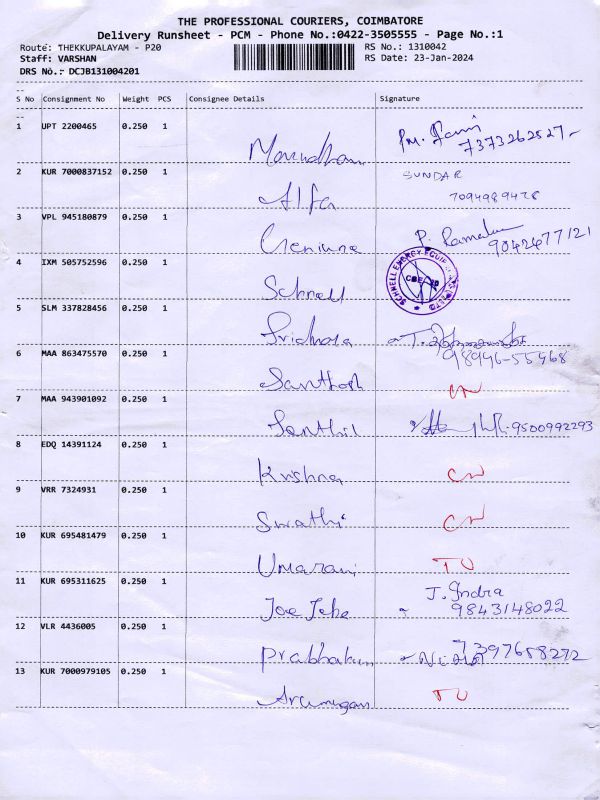 THE PROFESSIONAL COURIERS, COIMBATORE
Delivery Runsheet - PCM - Phone No.:0422-3505555 - Page No.:1
Route: THEKKUPALAYAM - P20 RS No.: 1310042
Staff: VARSHAN RS Date: 23-Jan-2024
DRS No.:- DCJB131004201
S No Consignment No Weight PCS Consignee Details Signature
1 UPT 2200465 0.250 1
7373262527
2 KUR 7000837152 0.250 1 Alfa SUNDAR
7094989428
3 VPL 945180879 0.250 1 Geniune P.
9042477121
4 IXM 505752596 0.250 1 Schnell SCHNELL ENERGY EQUIP
5 SLM 337828456 0.250 1 Sridhara
98946-55468
6 MAA 863475570 0.250 1 Santhosh
7 MAA 943901092 0.250 1 Senthil 9500992293
8 EDQ 14391124 0.250 1 Krishna
9 VRR 7324931 0.250 1 Swathi
10 KUR 695481479 0.250 1 Umarani
11 KUR 695311625 0.250 1 Joe J. Indra
9843148022
12 VLR 4436005 0.250 1 Prabhakum 7397658272
13 KUR 7000979105 0.250 1 Arumugam